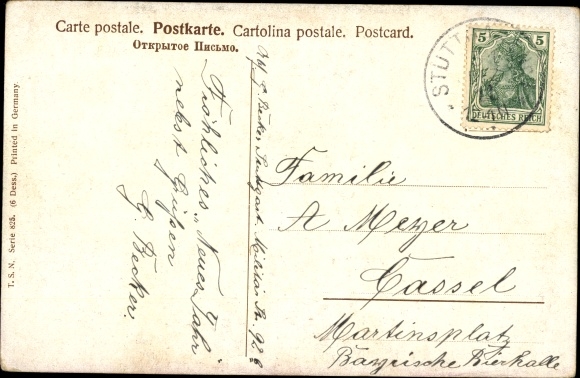 Carte postale. Postkarte. Cartolina postale. Postcard.
Открытое Письмо.
STUTT
5 5
DEUTSCHES REICH
T. S. N. Serie 825. (6 Dess.) Printed in Germany
Fröhliches „Neues Jahr"
nebst Grüßen
G. Becker.
Abs. G. Becker, Stuttgart, Militär Str. 92
Familie
A Meyer
Cassel
Martinsplatz
Bayrische Bierhalle